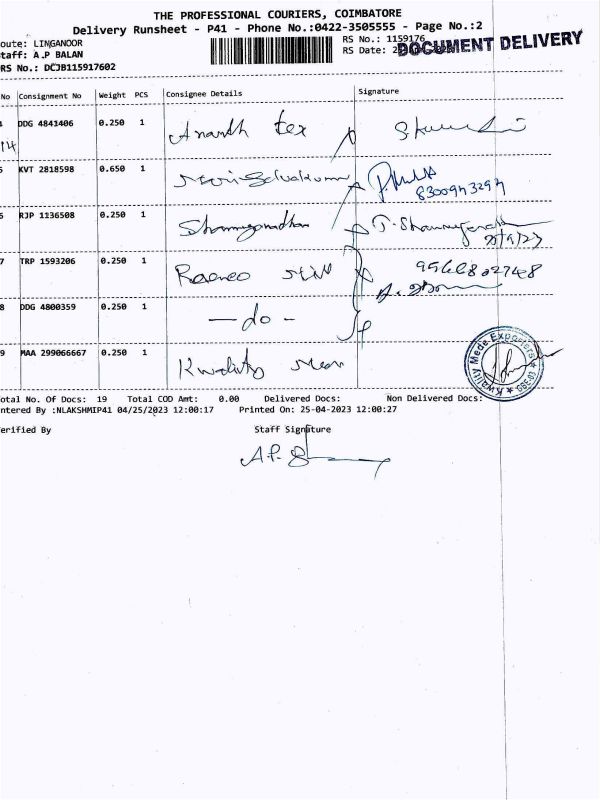 THE PROFESSIONAL COURIERS, COIMBATORE
Delivery Runsheet - P41 - Phone No.:0422-3505555 - Page No.:2
oute: LINGANOOR
RS No.: 1159176
taff: A.P BALAN
RS Date:
DOCUMENT DELIVERY
RS No.: DCJB115917602
No Consignment No Weight PCS Consignee Details Signature
DDG 4841406 0.250 1 Ananth tex
14
KVT 2818598 0.650 1
8300943294
RJP 1136508 0.250 1 Shanmuganathan
7 TRP 1593206 0.250 1 mill
8 DDG 4800359 0.250 1 -do-
9 MAA 299066667 0.250 1 Kwality
Kwality Mede Exporters
otal No. Of Docs: 19 Total COD Amt: 0.00 Delivered Docs: Non Delivered Docs:
ntered By :NLAKSHMIP41 04/25/2023 12:00:17 Printed On: 25-04-2023 12:00:27
erified By Staff Signature